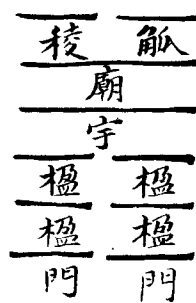 稜 觚
廟
宇
楹 楹
楹 楹
門 門